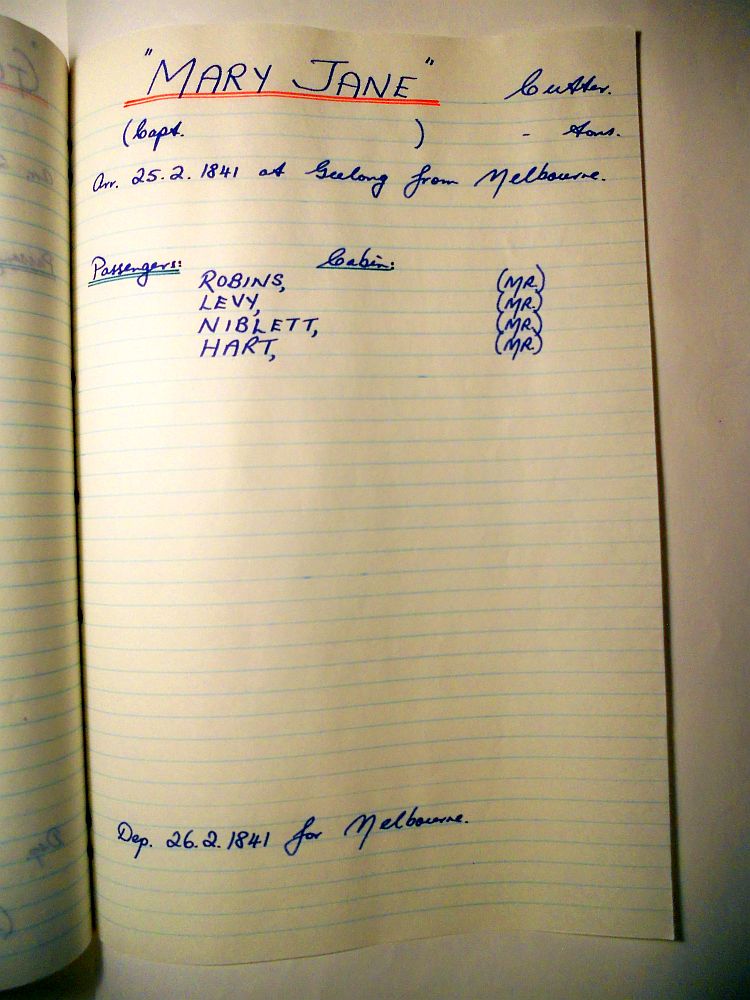 "MARY JANE" Cutter.
(Capt. ) - tons.
Arr. 25.2.1841 at Geelong from Melbourne.
Passengers: Cabin:
ROBINS, (MR.)
LEVY, (MR.)
NIBLETT, (MR.)
HART, (MR.)
Dep. 26.2.1841 for Melbourne.